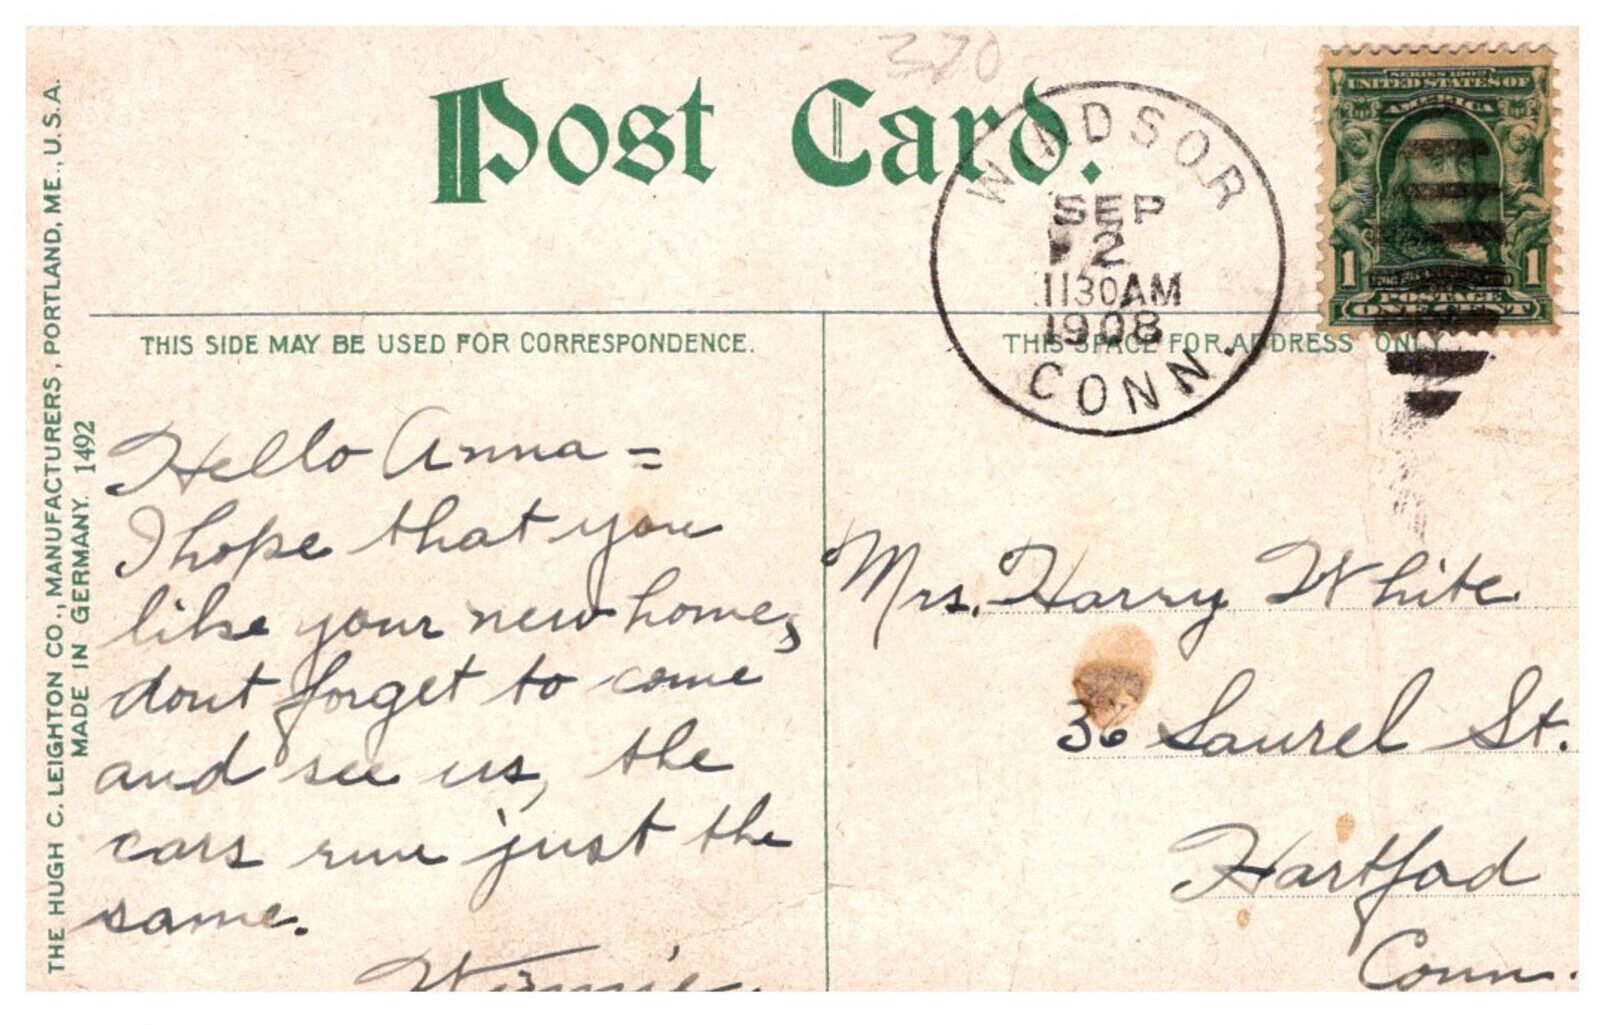 370
Post Card.
WINDSOR
SEP
2
1130AM
1908
CONN.
SERIES 1902
UNITED STATES OF
AMERICA
1 1
POSTAGE
ONE CENT
THE HUGH C. LEIGHTON CO., MANUFACTURERS, PORTLAND, ME., U.S.A.
MADE IN GERMANY. 1492
THIS SIDE MAY BE USED FOR CORRESPONDENCE.
THIS SPACE FOR ADDRESS ONLY
Hello Anna =
I hope that you
like your new home,
dont forget to come
and see us, the
cars run just the
same.
Winnie.
Mrs. Harry White
36 Laurel St.
Hartfod
Conn.